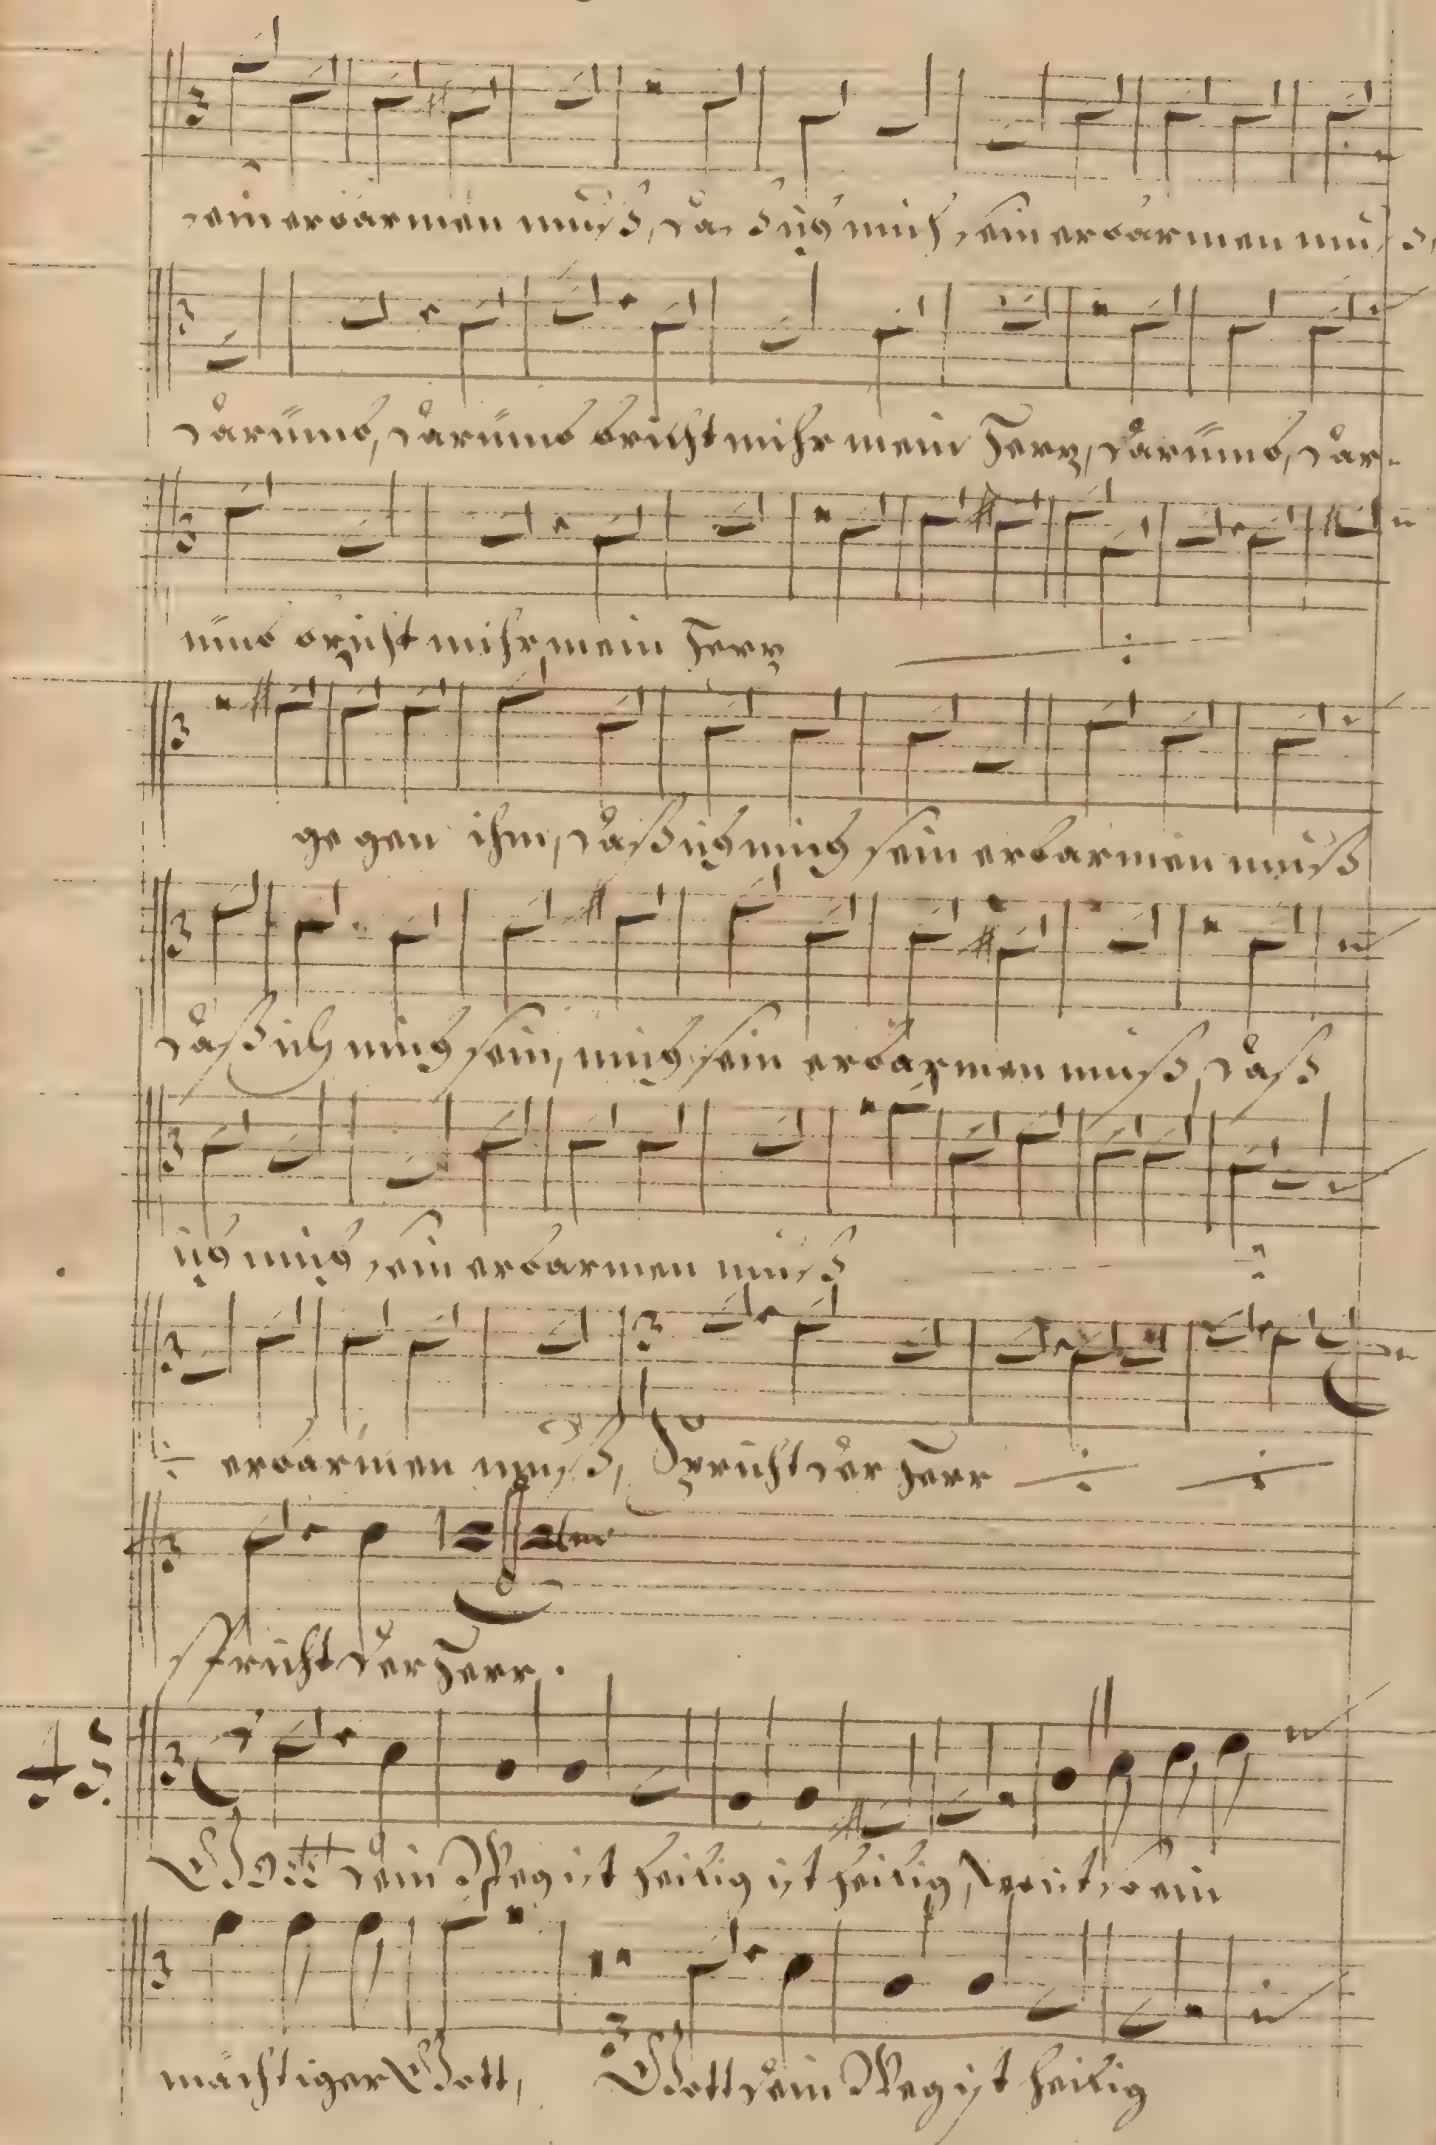 sein erbarmen muß, daß ich mich sein erbarmen muß,
Darumb, darumb bricht mihr mein Herz, darumb, dar-
umb bricht mihr mein Herz ÷
gegen ihm, daß ich mich sein erbarmen muß
daß ich mich sein, mich sein erbarmen muß, daß
ich mich sein erbarmen muß ÷
÷ erbarmen muß, Spricht der Herr ÷ ÷
spricht der Herr.
45.
GOtt dein Weg ist heilig ist heilig, wo ist so ein
mächtiger Gott, Gott dein Weg ist heilig